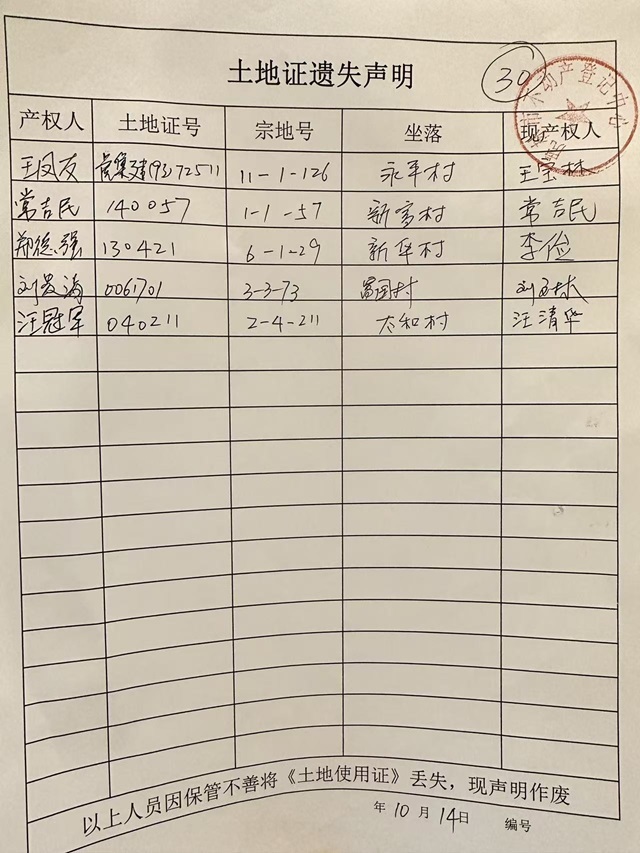 土地证遗失声明
30
不动产登记中心
产权人 土地证号 宗地号 坐落 现产权人
王凤友 集建(93)72511 11-1-126 永平村 王宝林
常吉民 140057 1-1-57 新富村 常吉民
郑德强 130421 6-1-29 新华村 李俭
刘 涛 0061701 3-3-73 富国村 刘 林
汪冠军 040211 2-4-211 太和村 汪清华
以上人员因保管不善将《土地使用证》丢失，现声明作废
年 10 月 14日 编号